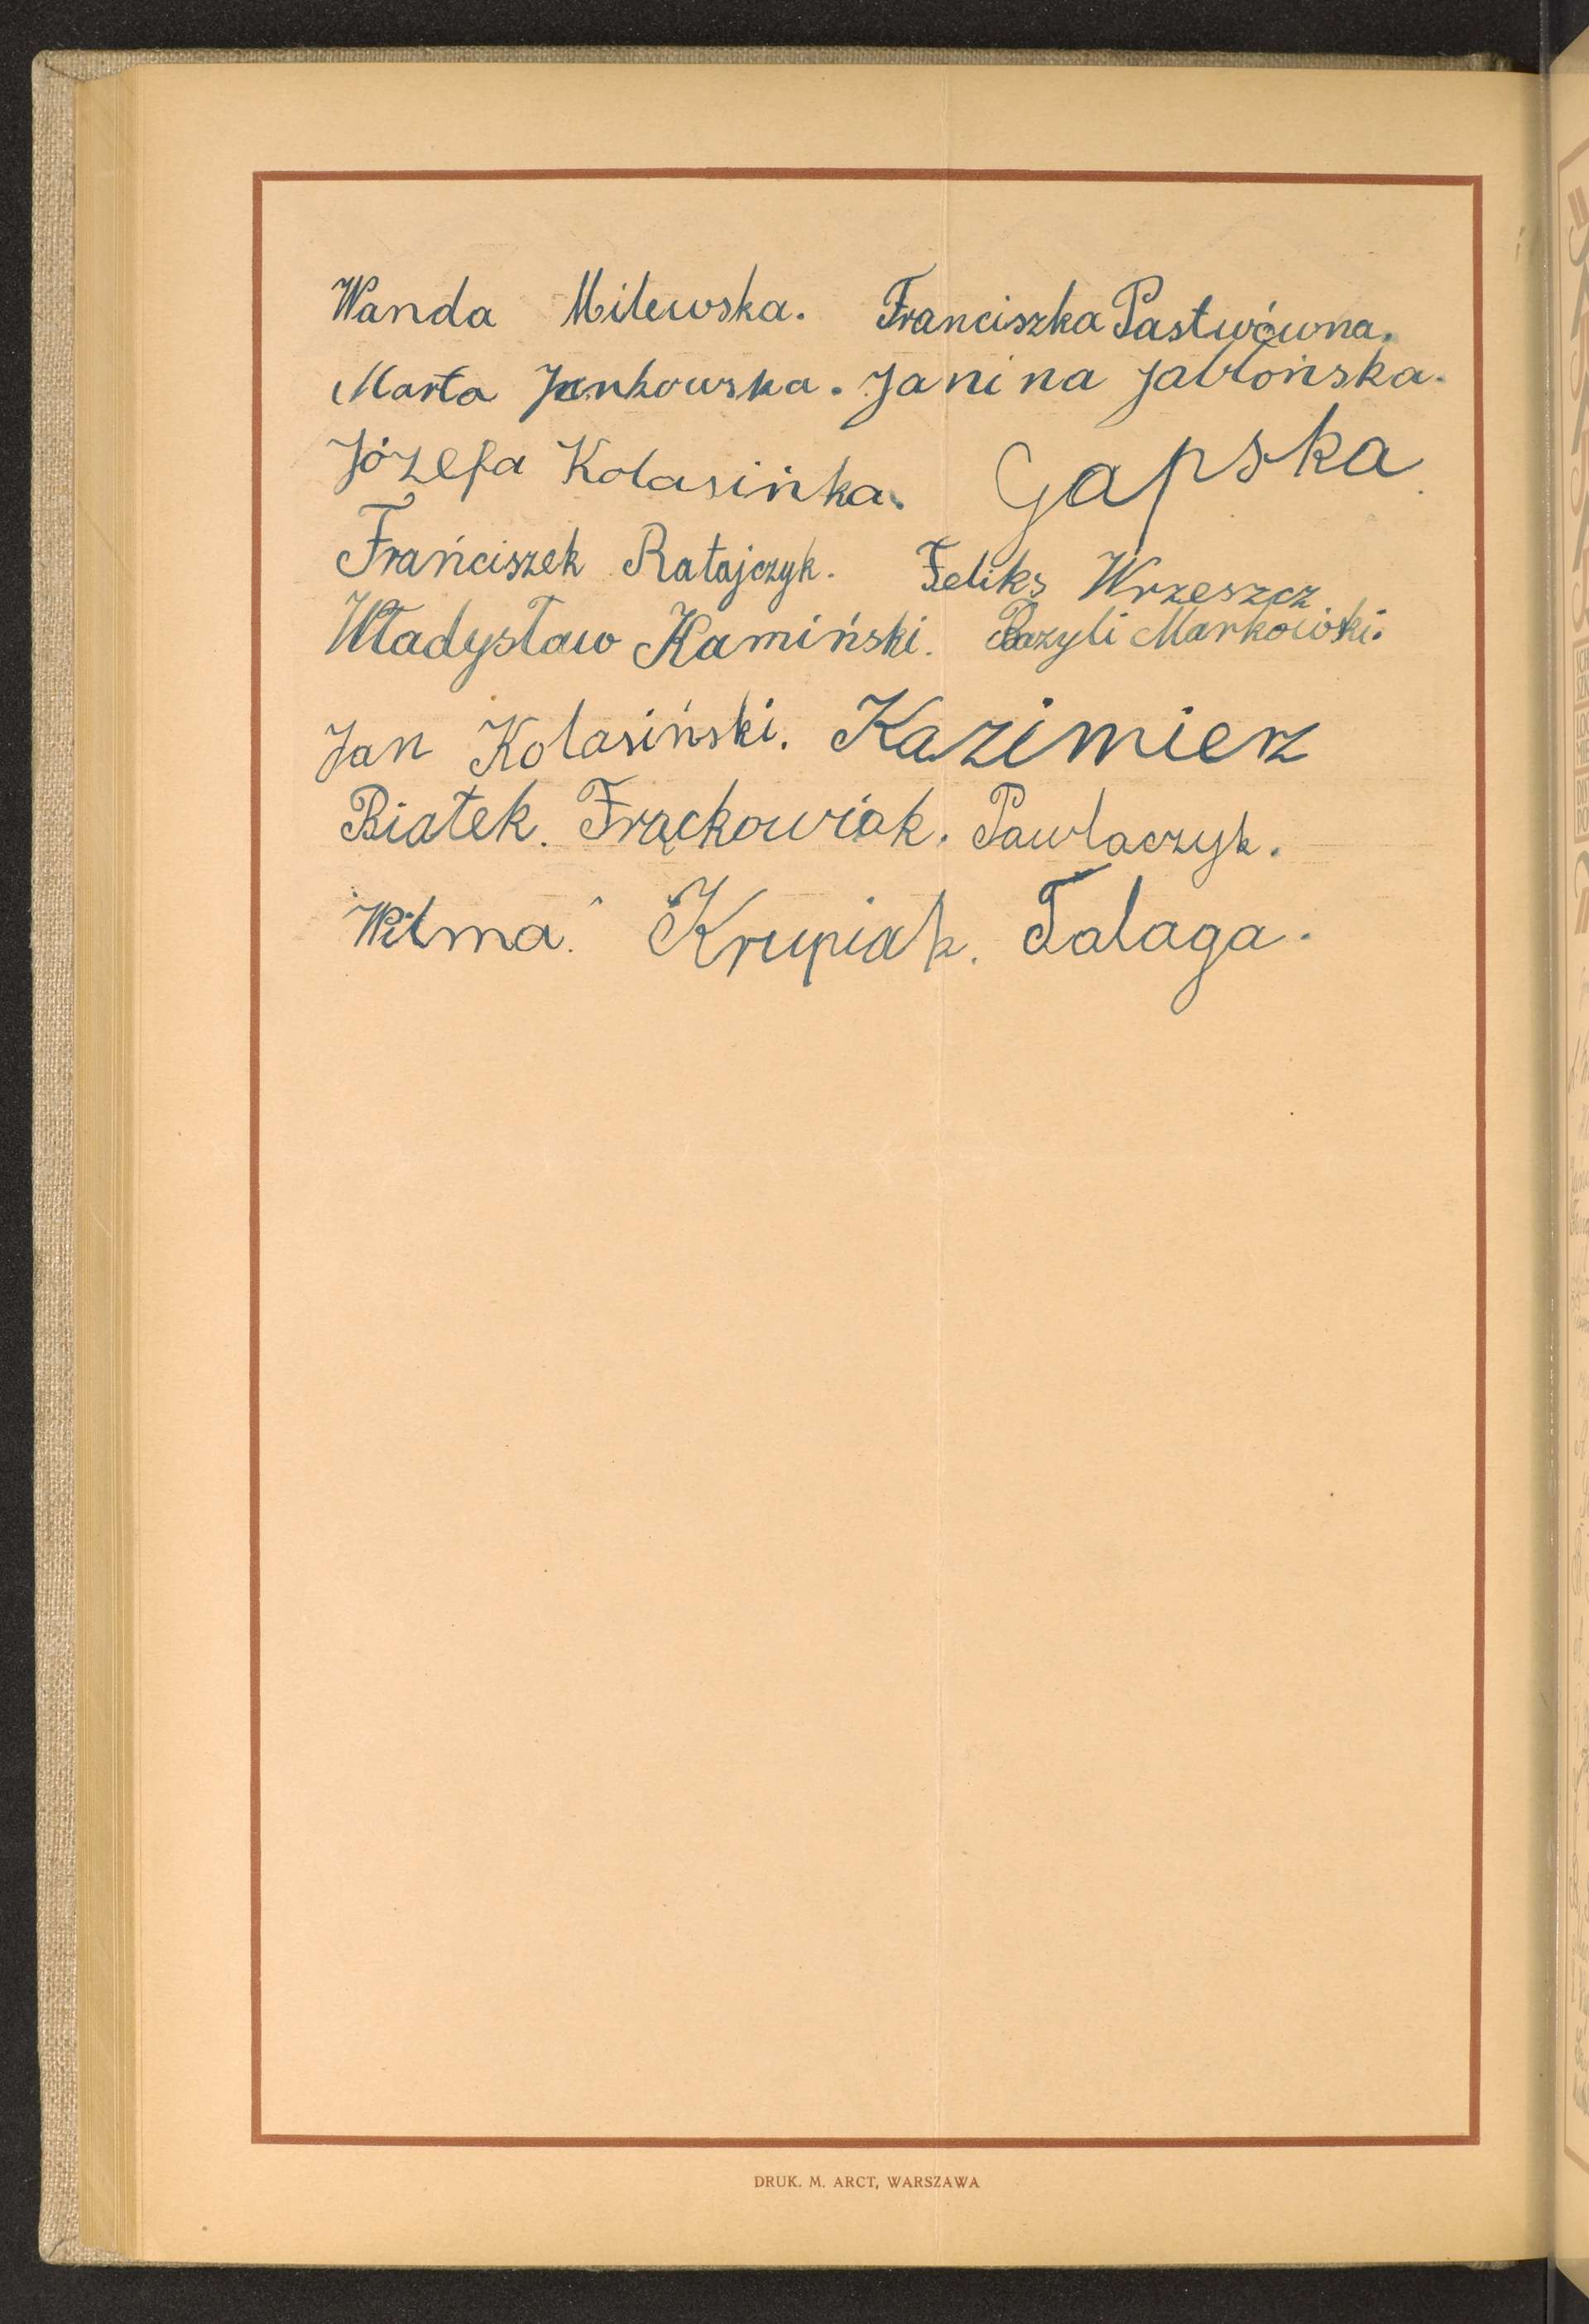 Wanda Milewska. Franciszka Pastwówna.
Marta Jankowska. Janina Jabłońska.
Józefa Kolasińka. Gapska
Frańciszek Ratajczyk. Feliks Wrzeszcz
Władysław Kamiński. Bazyli Markowski.
Jan Kolasiński. Kazimierz
Białek. Frąckowiak. Pawlaczyk.
Wilma. Krupiak. Talaga.
DRUK. M. ARCT, WARSZAWA